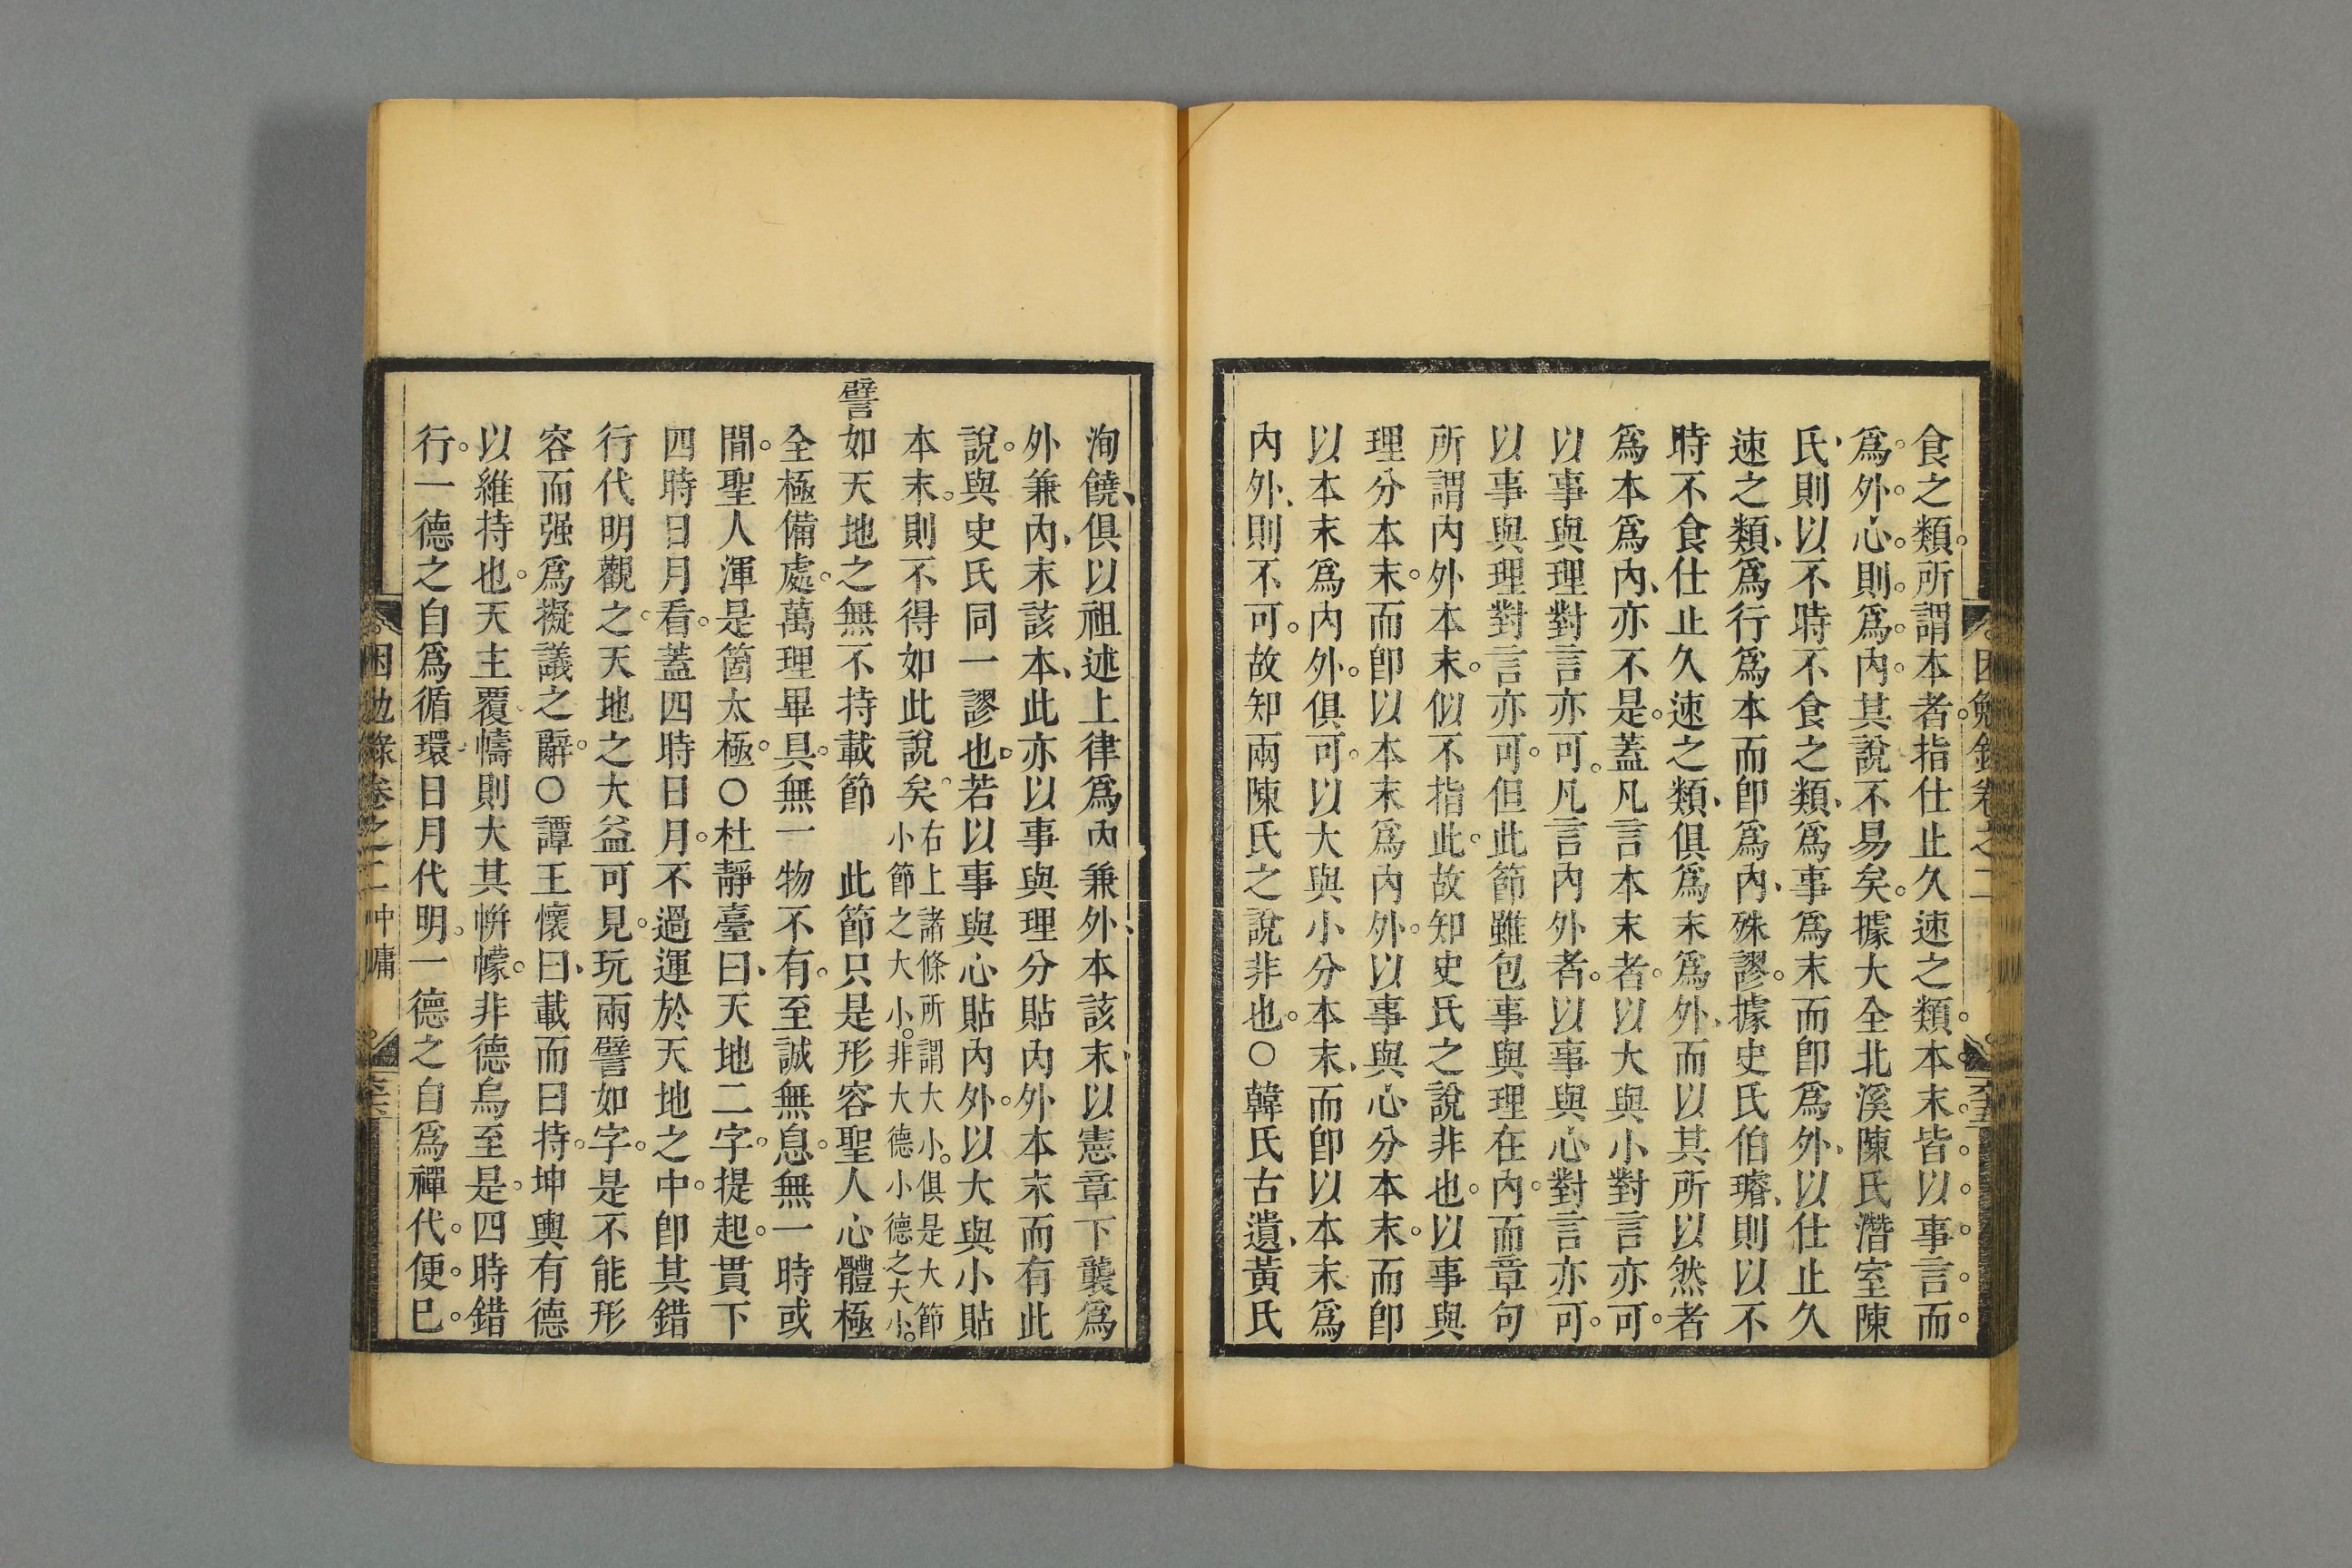 食之類所謂本者指仕止久速之類本末皆以事言而
爲外心則爲內其說不易矣據大全北溪陳氏潛室陳
氏則以不時不食之類爲事爲末而卽爲外以仕止久
速之類爲行爲本而卽爲內殊謬據史氏伯璿則以不
時不食仕止久速之類俱爲末爲外而以其所以然者
爲本爲內亦不是蓋凡言本末者以大與小對言亦可
以事與理對言亦可凡言內外者以事與心對言亦可
以事與理對言亦可但此節雖包事與理在內而章句
所謂內外本末似不指此故知史氏之說非也以事與
理分本末而卽以本末爲內外以事與心分本末而卽
以本末爲內外俱可以大與小分本末而卽以本末爲
內外則不可故知兩陳氏之說非也〇韓氏古遺黃氏
洵饒俱以祖述上律爲內兼外本該末以憲章下襲爲
外兼內末該本此亦以事與理分貼內外本末而有此
說與史氏同一謬也若以事與心貼內外以大與小貼
本末則不得如此說矣右上諸條所謂大小俱是大節
小節之大小非大德小德之大小
譬如天地之無不持載節　此節只是形容聖人心體極
全極備處萬理畢具無一物不有至誠無息無一時或
間聖人渾是箇太極〇杜靜臺曰天地二字提起貫下
四時日月看蓋四時日月不過運於天地之中卽其錯
行代明觀之天地之大益可見玩兩譬如字是不能形
容而强爲擬議之辭〇譚王懷曰載而曰持坤輿有德
以維持也天主覆幬則大其帡幪非德烏至是四時錯
行一德之自爲循環日月代明一德之自爲禪代便已
困勉錄卷之二 中庸